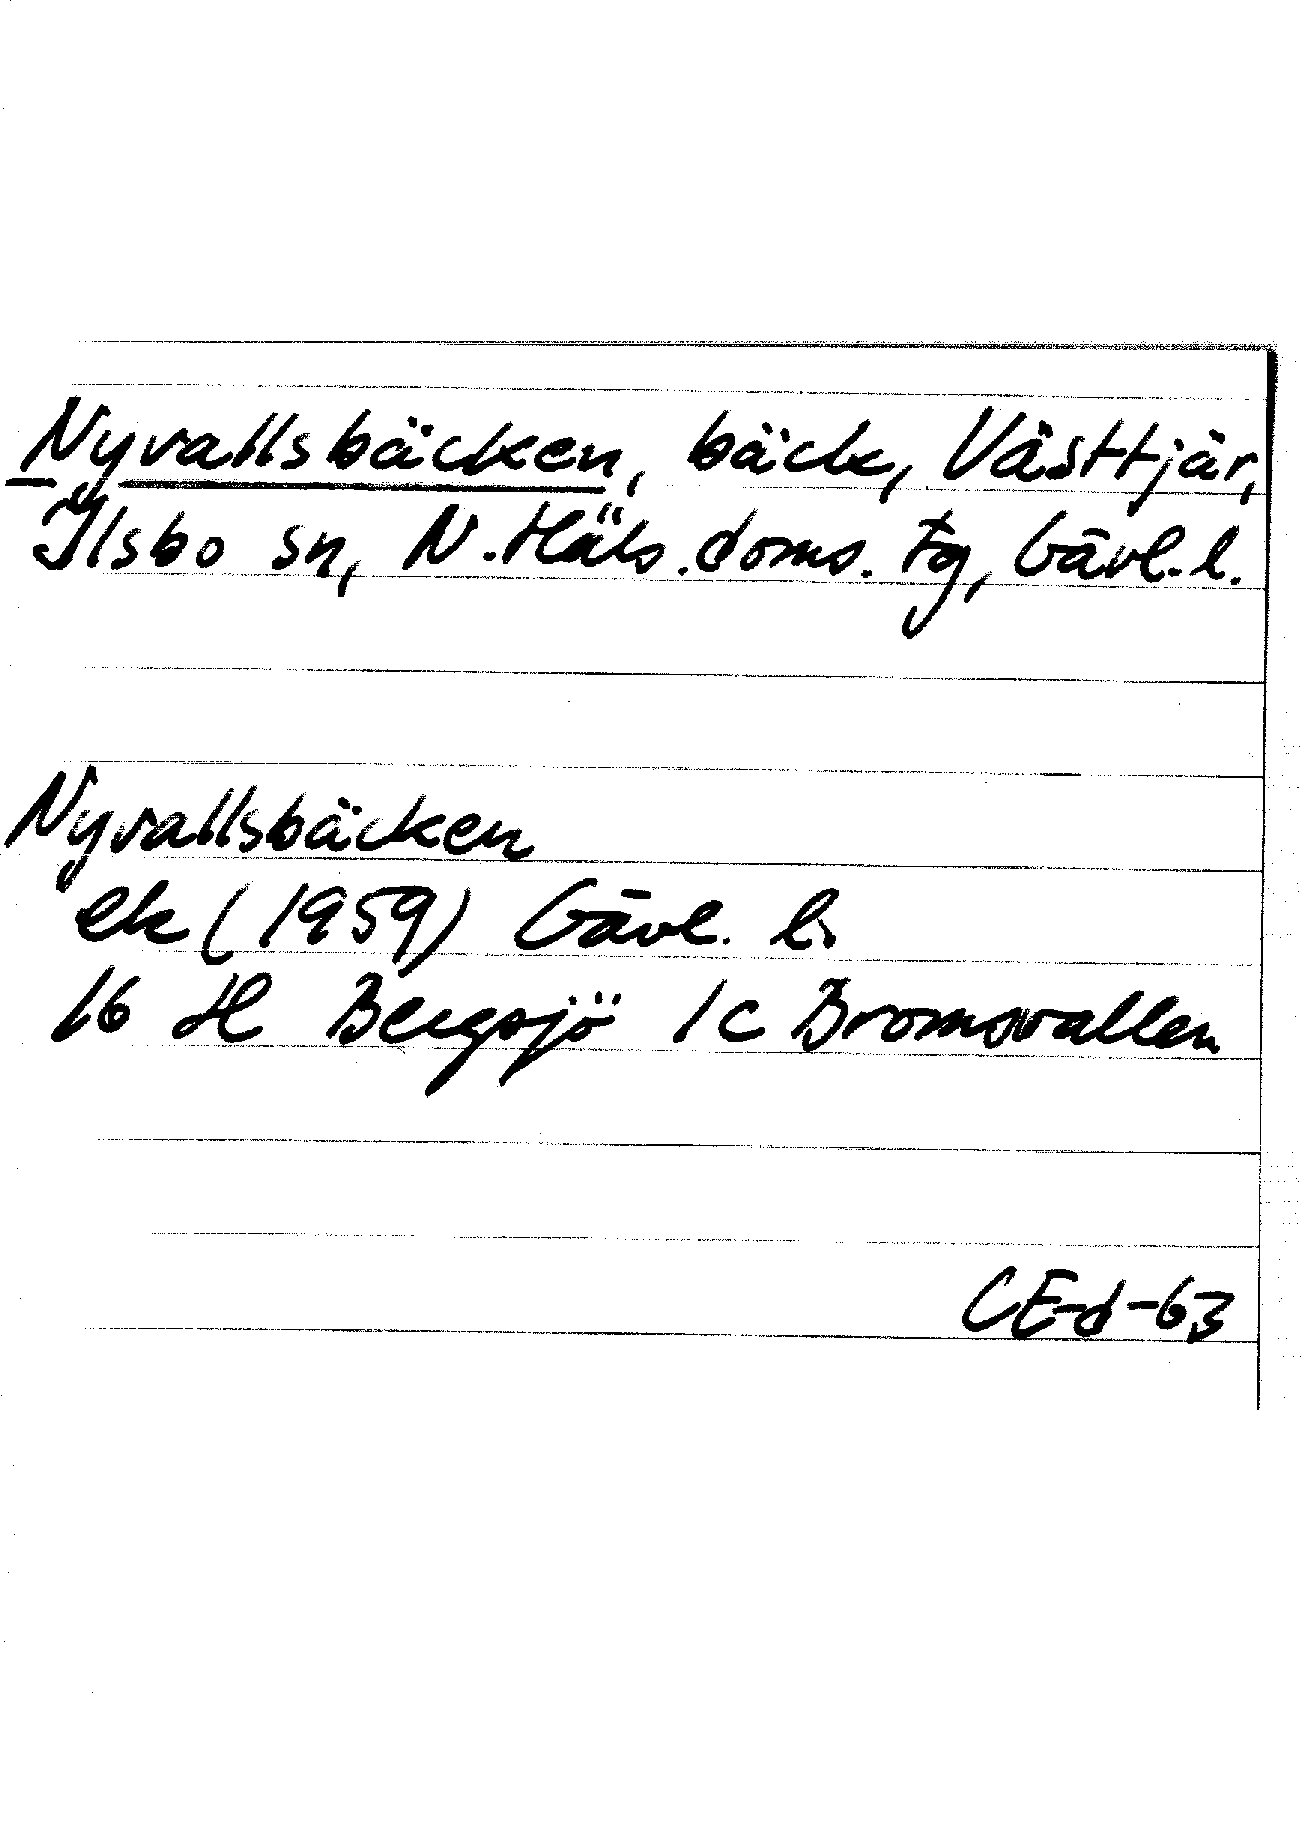 Nyvallsbäcken, bäck, Västtjär,
Ilsbo sn, N. Häls. doms. fg, Gävl. l.
Nyvallsbäcken
ek (1959) Gävl. l.
16 H Bergsjö 1c Bromsvallen
CE-d-63